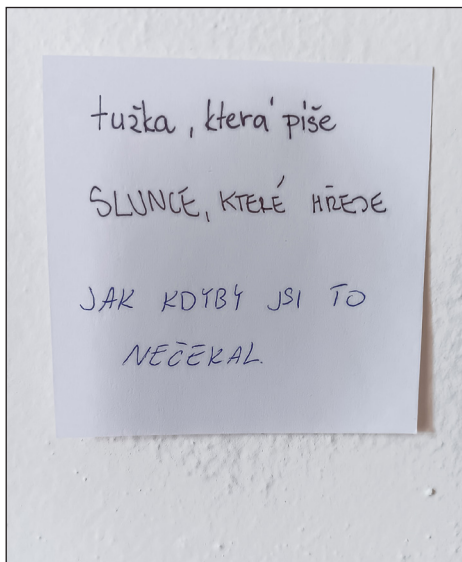 tužka, která píše
SLUNCE, KTERÉ HŘEJE
JAK KDYBY JSI TO
NEČEKAL.